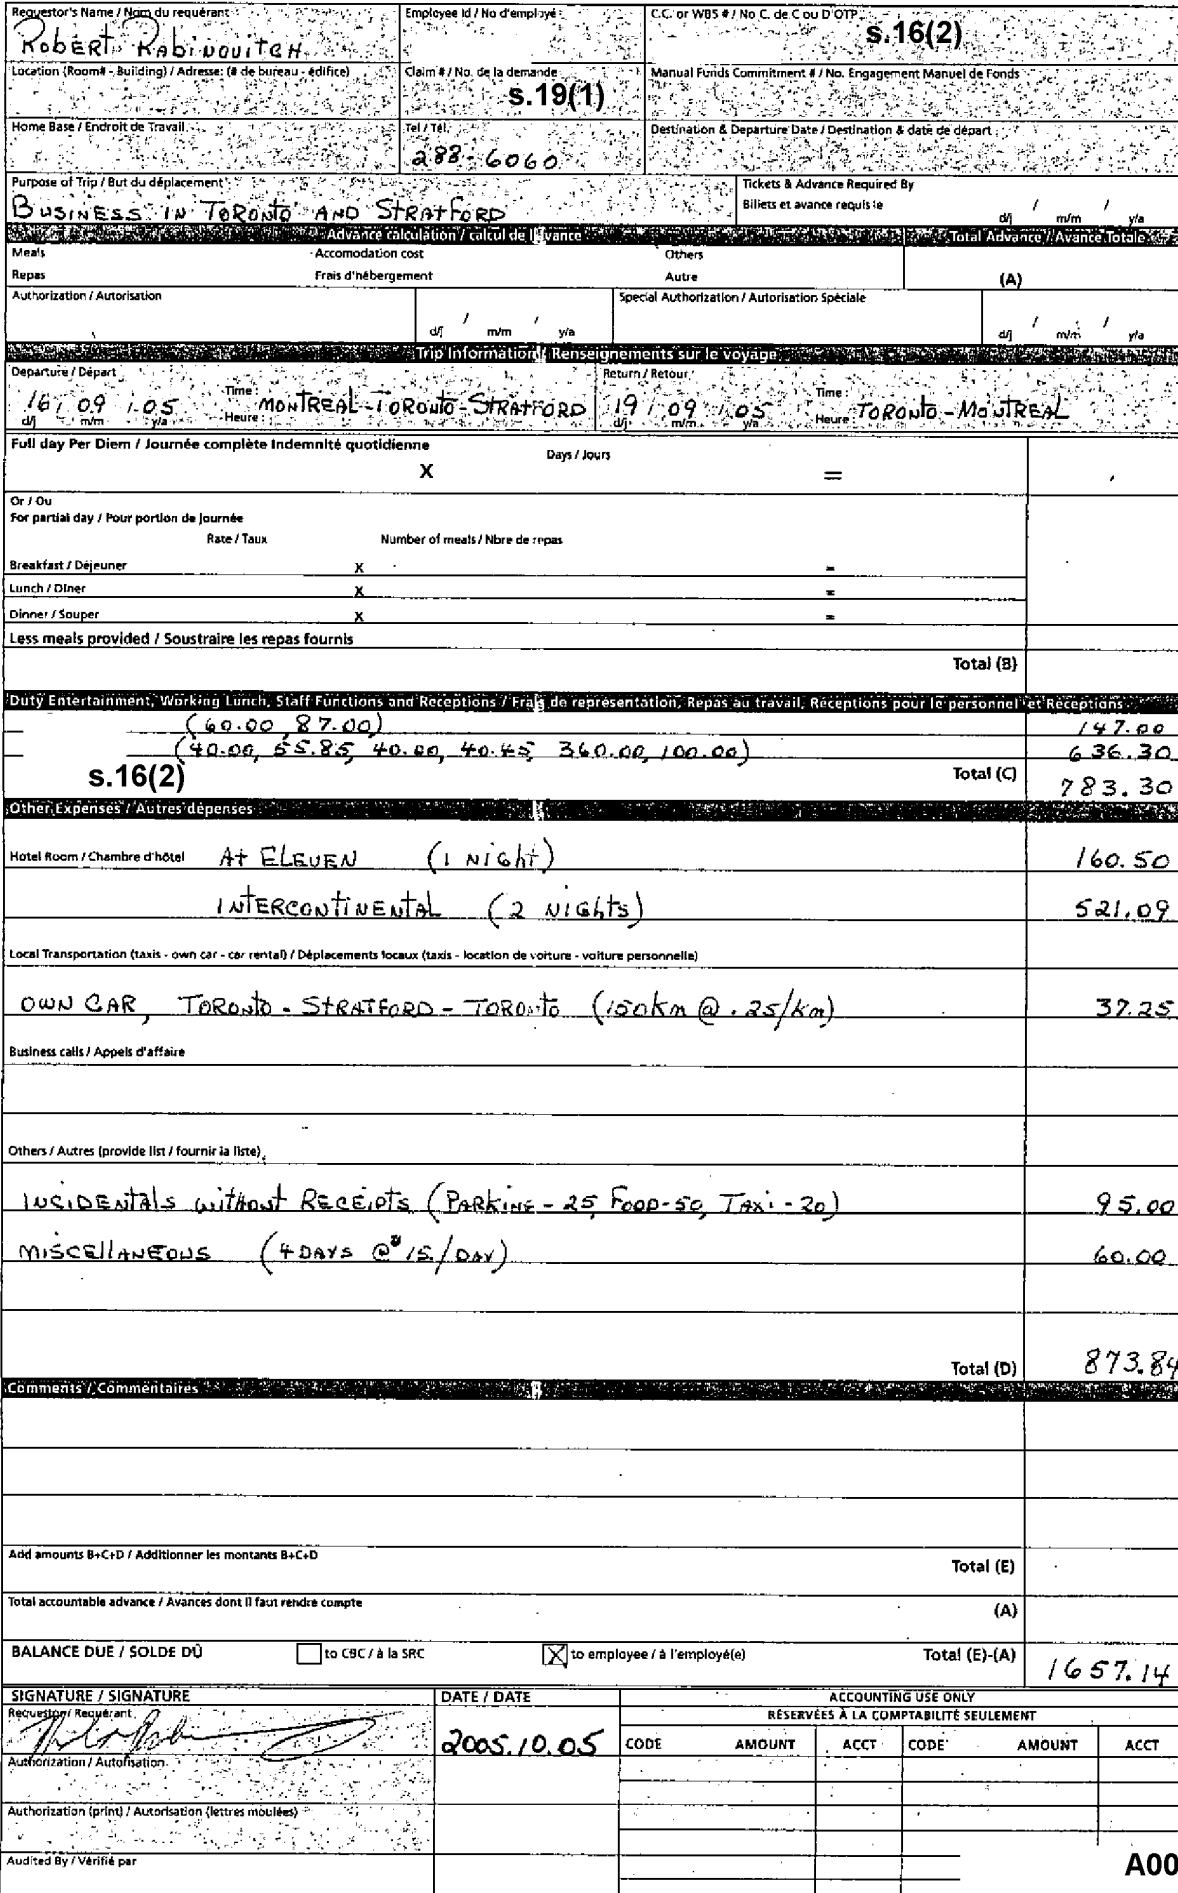 Requestor's Name / Nom du requérant
Robert Rabinovitch
Employee Id / No d'employé
C.C. or WBS # / No C. de C ou D'OTP
s.16(2)
Location (Room# - Building) / Adresse: (# de bureau - édifice)
Claim # / No. de la demande
s.19(1)
Manual Funds Commitment # / No. Engagement Manuel de Fonds
Home Base / Endroit de Travail
Tel / Tél.
288-6060
Destination & Departure Date / Destination & date de départ
Purpose of Trip / But du déplacement
BUSINESS IN TORONTO AND STRATFORD
Tickets & Advance Required By
Billets et avance requis le
d/j / m/m / y/a
Advance calculation / calcul de l'avance
Total Advance / Avance Totale
Meals Accomodation cost Others
Repas Frais d'hébergement Autre (A)
Authorization / Autorisation
d/j / m/m / y/a
Special Authorization / Autorisation Spéciale
d/j / m/m / y/a
Trip Information / Renseignements sur le voyage
Departure / Départ
16 / 09 / 05
d/j m/m y/a
Time
Heure
MONTREAL-TORONTO-STRATFORD
Return / Retour
19 / 09 / 05
d/j m/m y/a
Time
Heure
TORONTO-MONTREAL
Full day Per Diem / Journée complète Indemnité quotidienne
Days / Jours
X =
Or / Ou
For partial day / Pour portion de journée
Rate / Taux Number of meals / Nbre de repas
Breakfast / Déjeuner X =
Lunch / Dîner X =
Dinner / Souper X =
Less meals provided / Soustraire les repas fournis
Total (B)
Duty Entertainment, Working Lunch, Staff Functions and Receptions / Frais de représentation, Repas au travail, Réceptions pour le personnel et Réceptions
(60.00, 87.00) 147.00
(40.00, 55.85, 40.00, 40.45, 360.00, 100.00) 636.30
s.16(2)
Total (C) 783.30
Other Expenses / Autres dépenses
Hotel Room / Chambre d'hôtel At ELEVEN (1 Night) 160.50
INTERCONTINENTAL (2 NIGHTS) 521.09
Local Transportation (taxis - own car - car rental) / Déplacements locaux (taxis - location de voiture - voiture personnelle)
OWN CAR, TORONTO - STRATFORD - TORONTO (150km @ .25/km) 37.25
Business calls / Appels d'affaire
Others / Autres (provide list / fournir la liste)
INCIDENTALS without RECEIPTS (PARKING - 25, FOOD-50, TAXI - 20) 95.00
MISCELLANEOUS (4 DAYS @ $15./DAY) 60.00
Total (D) 873.84
Comments / Commentaires
Add amounts B+C+D / Additionner les montants B+C+D
Total (E)
Total accountable advance / Avances dont il faut rendre compte
(A)
BALANCE DUE / SOLDE DÛ to CBC / à la SRC X to employee / à l'employé(e) Total (E)-(A) 1657.14
SIGNATURE / SIGNATURE
DATE / DATE
ACCOUNTING USE ONLY
RÉSERVÉES À LA COMPTABILITÉ SEULEMENT
Requestor / Requérant
2005.10.05
CODE AMOUNT ACCT CODE AMOUNT ACCT
Authorization / Autorisation
Authorization (print) / Autorisation (lettres moulées)
Audited By / Vérifié par
A00